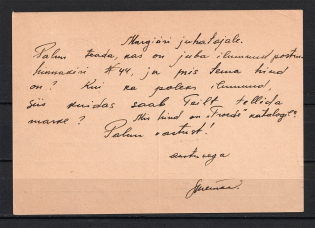 Margiäri juhatajale.
Palun teada, kas on juba ilmunud postmargi
hinnakiri N 44, ja mis tema hind
on? Kui ka poleks ilmunud,
siis kuidas saab Teilt tellida
marke? Mis hind on "Troedi" kataloogil?
Palun vastust!
austusega